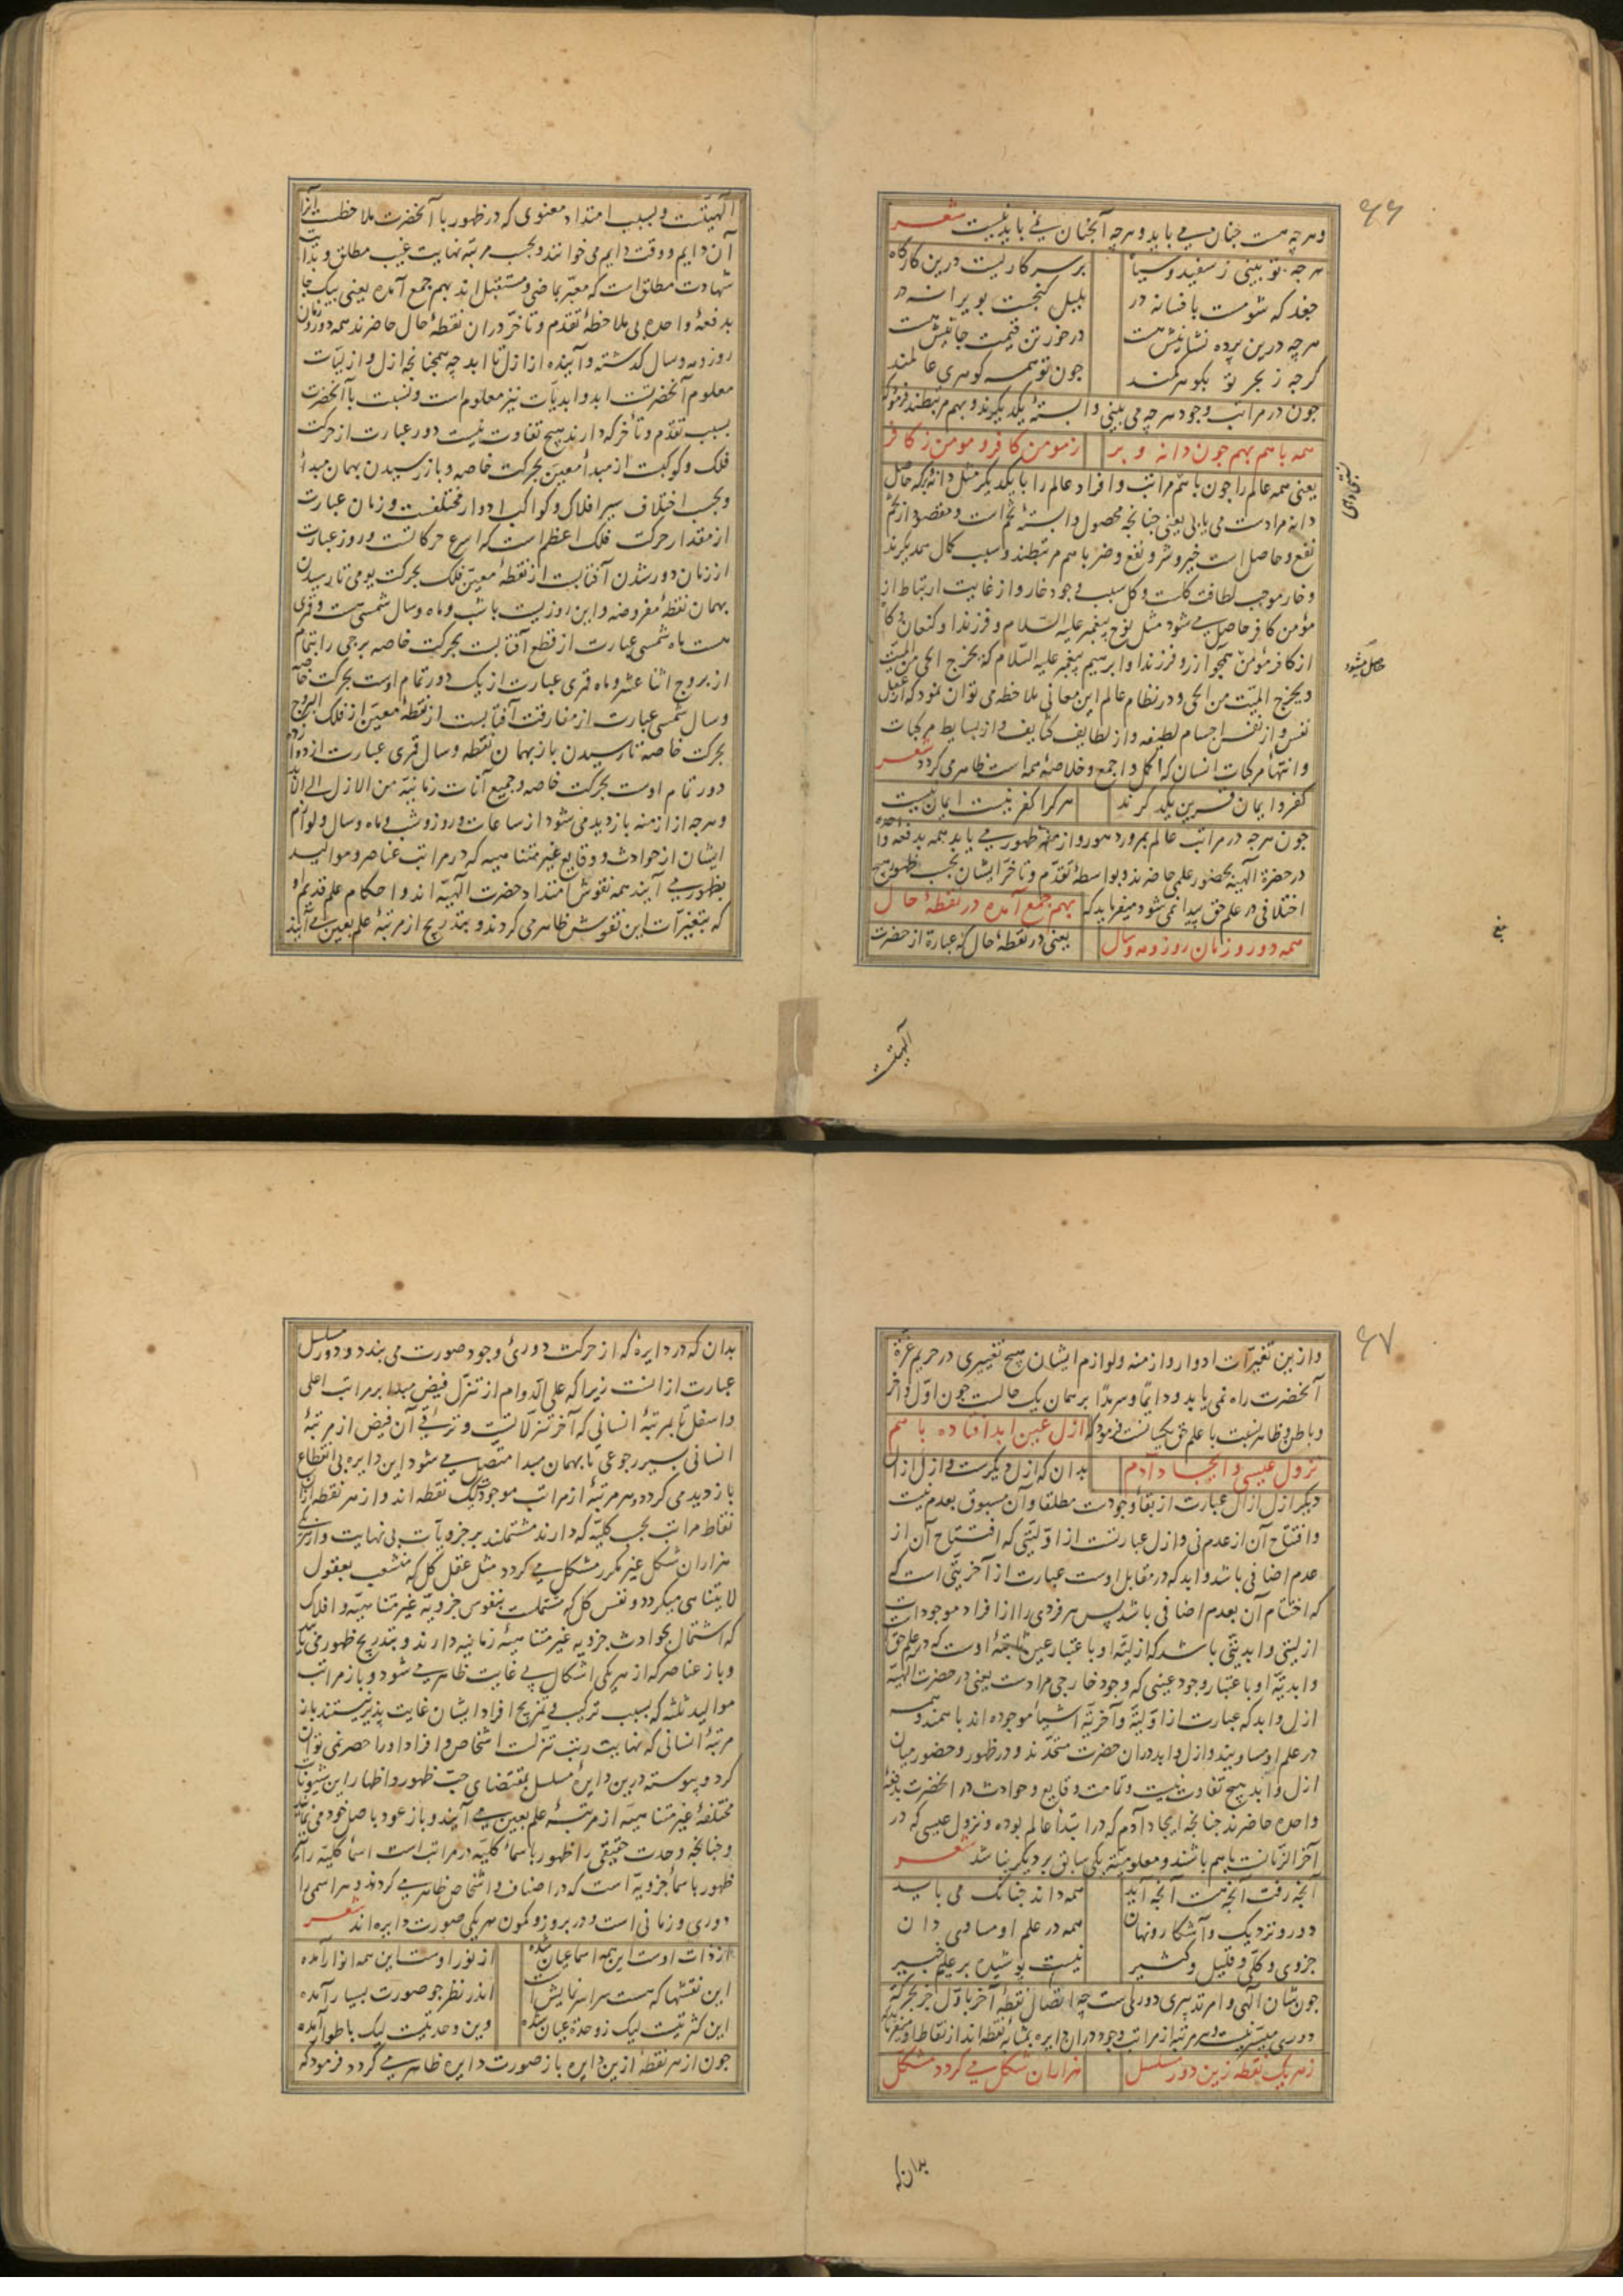 ۶۶
وهرچه هست چنان می باید و هرچه آنچنان نمی باید نیست شعر
هرچه تو بینی ز سفید و سیاه
بر سر کاریست درین کارگاه
جغد که شومست بافسانه در
بلبل گنجست بویرانه در
هرچه درین پرده نشانیش هست
درخور تن قیمت جانیش هست
گرچه ز بحر تو بگوهر کمند
چون تو همه گوهری عالمند
چون در مراتب وجود هرچه می بینی وابستهٔ یکدیگرند و بهم مرتبطند فرمود که
همه با هم بهم چون دانه و بر
ز مومن کافر و مومن ز کافر
یعنی همه عالم را چون با هم مراتب و افراد عالم را با یکدیگر مثل دانهٔ بر که حاصل
دانه مرادست می یابی یعنی چنانچه محصول وابستهٔ تخم است و مقصود از تخم
نفع و حاصل است خیر و شر و نفع و ضر با هم مرتبطند و سبب کمال همدیگرند
و خار موجب لطافت گلست و گل سبب وجود خار و از غایت ارتباط از
مؤمن کافر حاصل می شود مثل نوح پیغمبر علیه السلام و فرزند او کنعان و کا
حاصل میشود
از کافر مؤمن همچو آزر و فرزند او ابرهیم پیغمبر علیه السلام که یخرج الحی من المیت
ویخرج المیت من الحی و در نظام عالم این معانی ملاحظه می توان نمود که از عقل
نفس و از نفس اجسام لطیفه و از لطایف کثایف و از بسایط مرکبات
و انتهاء مرکبات انسان که اکمل و اجمع و خلاصهٔ همه است ظاهر می گردد شعر
کفر و ایمان قرین یکدگرند
هرکرا کفر نیست ایمان نیست
چون هرچه در مراتب عالم بمرور دهور و ازمنه ظهور می یابد همه بدفعه واحده
در حضرة الهیه بحضور علمی حاضرند و بواسطهٔ تقدّم و تأخّر ایشان بحسب ظهور هیچ
اختلافی در علم حق پیدا نمی شود میفرماید که
بهم جمع آمده در نقطهٔ حال
همه دور و زمان روز و مه و سال
یعنی در نقطهٔ حال که عبارة از حضرت
الهیتست
الهیتست و بسبب امتداد معنوی که در ظهور با آنحضرت ملاحظست آنرا
آن دایم و وقت دایم می خوانند و بحسب مرتبه نهایت غیب مطلق و بدایت
شهادت مطلق است که معبّر بماضی و مستقبل اند بهم جمع آمده یعنی بیک جا
بدفعهٔ واحده بی ملاحظهٔ تقدم و تأخّر در ان نقطهٔ حال حاضرند همه دور و زمان
روز و مه و سال گذشته و آینده از ازل تا ابد چه همچنانچه ازل و ازلیّات
معلوم آنحضرتست ابد و ابدیّات نیز معلوم است و نسبت با آنحضرت
بسبب تقدّم و تأخّر که دارند هیچ تفاوت نیست دور عبارت از حرکت
فلک و کوکبست از مبدأ معین بحرکت خاصه و باز رسیدن بهمان مبدأ
و بحسب اختلاف سیر افلاک و کواکب ادوار مختلفست و زمان عبارت
از مقدار حرکت فلک اعظم است که اسرع حرکاتست و روز عبارت
از زمان دور شدن آفتابست از نقطهٔ معین فلک بحرکت یومی تا رسیدن
بهمان نقطهٔ مفروضه و این روزیست باشب و ماه و سال شمسی هست و قمری
هست ماه شمسی عبارت از قطع آفتابست بحرکت خاصه برجی را بتمام
از بروج اثنا عشر و ماه قمری عبارت از یک دور تمام اوست بحرکت خاصه
و سال شمسی عبارت از مفارقت آفتابست از نقطهٔ معین از فلک البروج
بحرکت خاصه تا رسیدن باز بهمان نقطه و سال قمری عبارت از دوازده
دور تمام اوست بحرکت خاصه و جمیع آنات زمانیّه من الازل الی الابد
و هرچه از ازمنه بازدید می شود از ساعات و روز و شب و ماه و سال و لوازم
ایشان از حوادث و وقایع غیر متناهیه که در مراتب عناصر و موالید
بظهور می آیند همه نقوش امتداد حضرت الهیّه اند و احکام علم قدیم او
که بتغیرات این نقوش ظاهر می گردند و بتدریج از مرتبهٔ علم بعین می آیند
۶۷
و ازین تغیّرات ادوار و ازمنه و لوازم ایشان هیچ تغییری در حریم عزّة
آنحضرت راه نمی یابد و دایمًا و سرمدًا بر همان یک حالست چون اوّل و آخر
و باطن و ظاهر نسبت با علم حق یکسانست فرمود که
ازل عین ابد افتاده با هم
نزول عیسی و ایجاد آدم
بدان که ازل دیگرست و ازل ازال
دیگر ازل ازال عبارت از بقاء وجودست مطلقا و آن مسبوق بعدم نیست
و افتتاح آن از عدم نی و ازل عبارتست از اوّلیّتی که افتتاح آن از
عدم اضافی باشد و ابد که در مقابل اوست عبارت از آخریّتی است
که اختتام آن بعدم اضافی باشد پس هر فردی را از افراد موجودات
ازلیتی و ابدیتی باشد که ازلیّه او باعتبار عین ثابتهٔ اوست که در علم حق
و ابدیّه او باعتبار وجود عینی که وجود خارجی مرادست یعنی در حضرت الهیّه
ازل و ابد که عبارت از اوّلیّه و آخریّه اشیاء موجوده اند با همند و همه
در علم او مساویند و ازل و ابد در ان حضرت متحدند و در ظهور و حضور میان
ازل و ابد هیچ تفاوت نیست و تمامت وقایع و حوادث در آنحضرت بدفعه
واحده حاضرند چنانچه ایجاد آدم که در ابتداء عالم بوده و نزول عیسی که در
آخر الزمانست با هم باشند و معلومیّته یکی سابق بر دیگر نباشد شعر
آنچه رفت آنچه هست آنچه آید
همه داند چنانک می باید
دور و نزدیک و آشکار و نهان
همه در علم او مساوی دان
جزوی و کلّی و قلیل و کثیر
نیست پوشیده بر علیم خبیر
چون شان آلهی و امر تدبیری دوریست چه اتصال نقطهٔ آخر باوّل جز بحرکة
دوری میسّر نیست و هر مرتبه از مراتب وجود در ان دایره بمثابهٔ نقطه اند از نقاط او میفرماید که
ز هر یک نقطه زین دور مسلسل
هزاران شکل می گردد مشکل
بدان که
بدان که در دایرهٔ که از حرکت دوریٔ وجود صورت می بندد و دور مسلسل
عبارت از انست زیرا که علی الدوام از تنزّل فیض مبدا بر مراتب اعلی
و اسفل تا بمرتبهٔ انسانی که آخر تنزّلاتست و ترقی آن فیض از مرتبهٔ
انسانی بسیر رجوعی تا بهمان مبدا متصل می شود این دایره بی انقطاع
بازدید می گردد و هر مرتبهٔ از مراتب موجودات یک نقطه اند و از هر نقطه ازان
نقاط مراتب بحسب کلیّه که دارند مشتملند بر جزویات بی نهایت و از هر یکی
هزاران شکل غیر مکرر مشکل می گردد مثل عقل کل که منشعب بعقول
لایتناهی میگردد و نفس کل که مشتملست بنفوس جزویّه غیر متناهیّه و افلاک
که اشتمال بحوادث جزویه غیر متناهیهٔ زمانیه دارند و بتدریج ظهور می یابد
و باز عناصر که از هر یکی اشکال بی غایت ظاهر می شود و باز مراتب
موالید ثلثه که بسبب ترکیب و تمزیج افراد ایشان غایت پذیر نیستند باز
مرتبهٔ انسانی که نهایت رتب تنزّلست اشخاص و افراد او را حصر نمی توان
کرد و پیوسته درین دایرهٔ مسلسل بمقتضای حبّ ظهور و اظهار این شئونات
مختلفهٔ غیر متناهیّه از مرتبهٔ علم بعین می آیند و باز عود باصل خود می نمایند
و چنانچه وحدت حقیقی را ظهور باسماء کلیّه در مراتب است اسماء کلیّه را نیز
ظهور باسماء جزویّه است که در اصناف و اشخاص ظاهر می گردند و هر اسمی را
دوری و زمانی است و در بروز و کمون هر یکی صورت دایره اند شعر
از ذات اوست این همه اسما عیان شده
از نور اوست این همه انوار آمده
این نقشها که هست سراسر نمایش است
اندر نظر چو صورت بسیار آمده
این کثرتیست لیک ز وحدة عیان شده
وین وحدتیست لیک باطوار آمده
چون از هر نقطهٔ ازین دایره باز صورت دایره ظاهر می گردد فرمود که